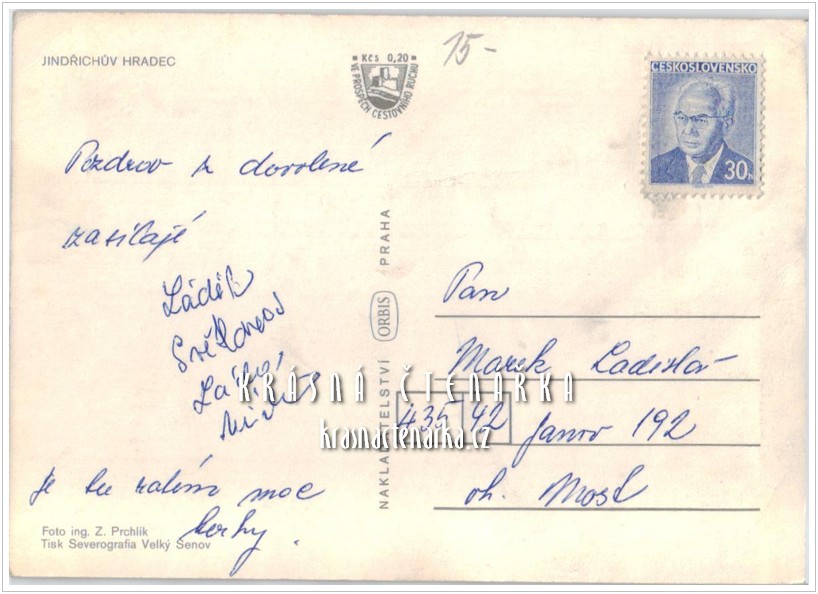 JINDŘICHŮV HRADEC
Kčs 0,20
VE PROSPĚCH CESTOVNÍHO RUCHU
15-
ČESKOSLOVENSKO
30h
Pozdrav z dovolené
zasílají
Ládik
Pan
Marek Ladislav
435 42 Janov 192
ok. Most
je tu zatím moc
hezky.
NAKLADATELSTVÍ ORBIS PRAHA
KRÁSNÁ ČTENÁŘKA
krasnactenarka.cz
Foto ing. Z. Prchlík
Tisk Severografia Velký Šenov